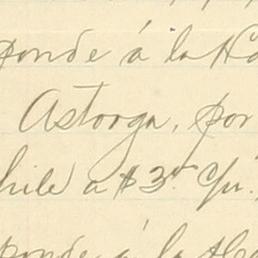 ponde á la Ha
Astorga, por
hile a $3.- c/u.
ponde á la Ha